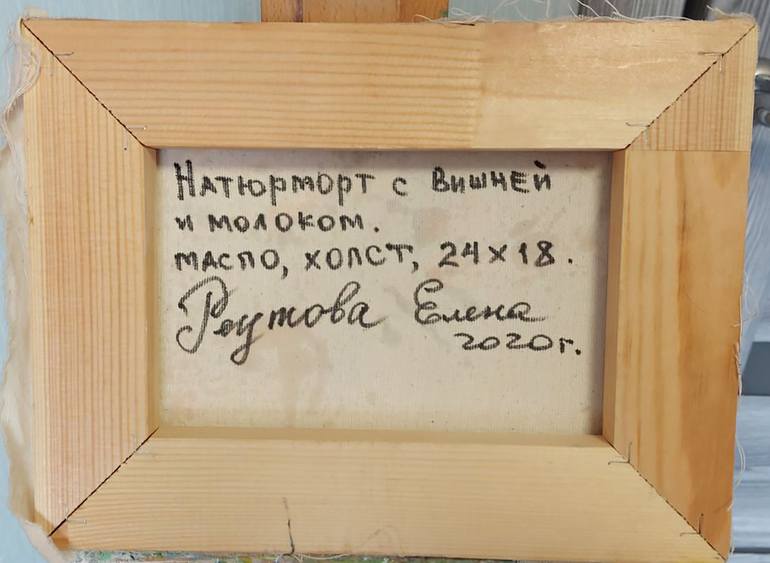 Натюрморт с вишней
и молоком.
масло, холст, 24х18.
Реутова Елена
2020г.